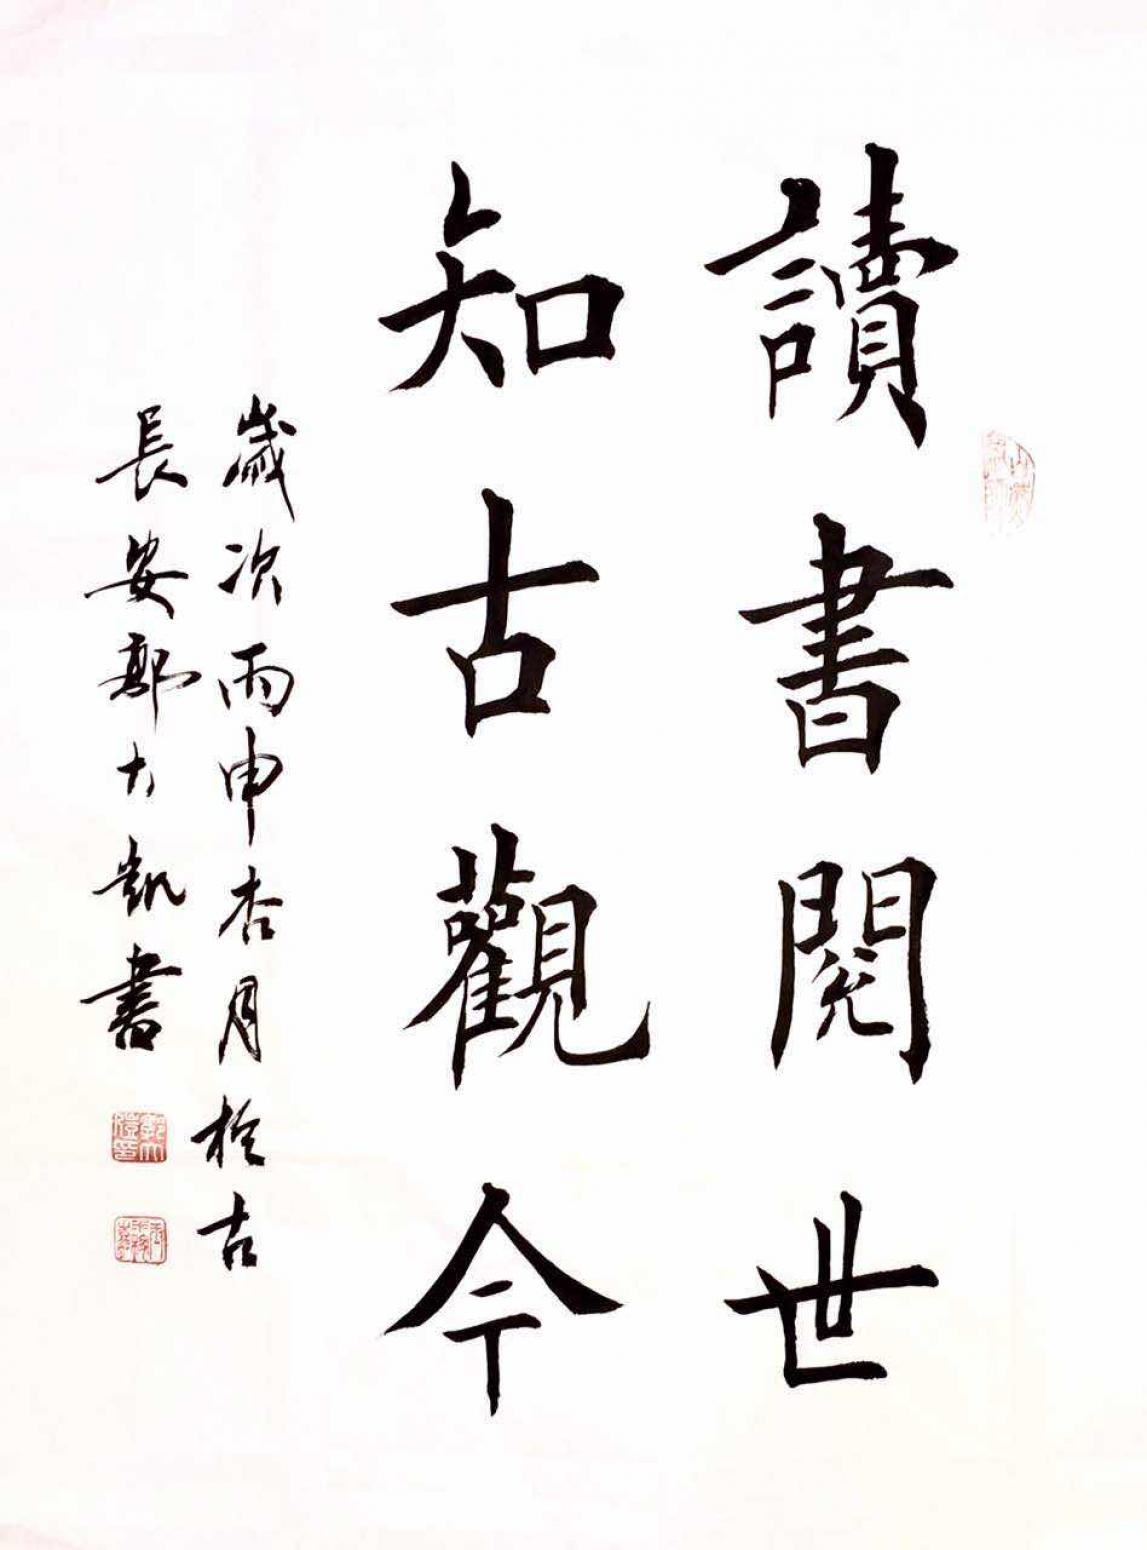 讀書閱世
知古觀今
歲次丙申杏月於古
長安郭大凱書